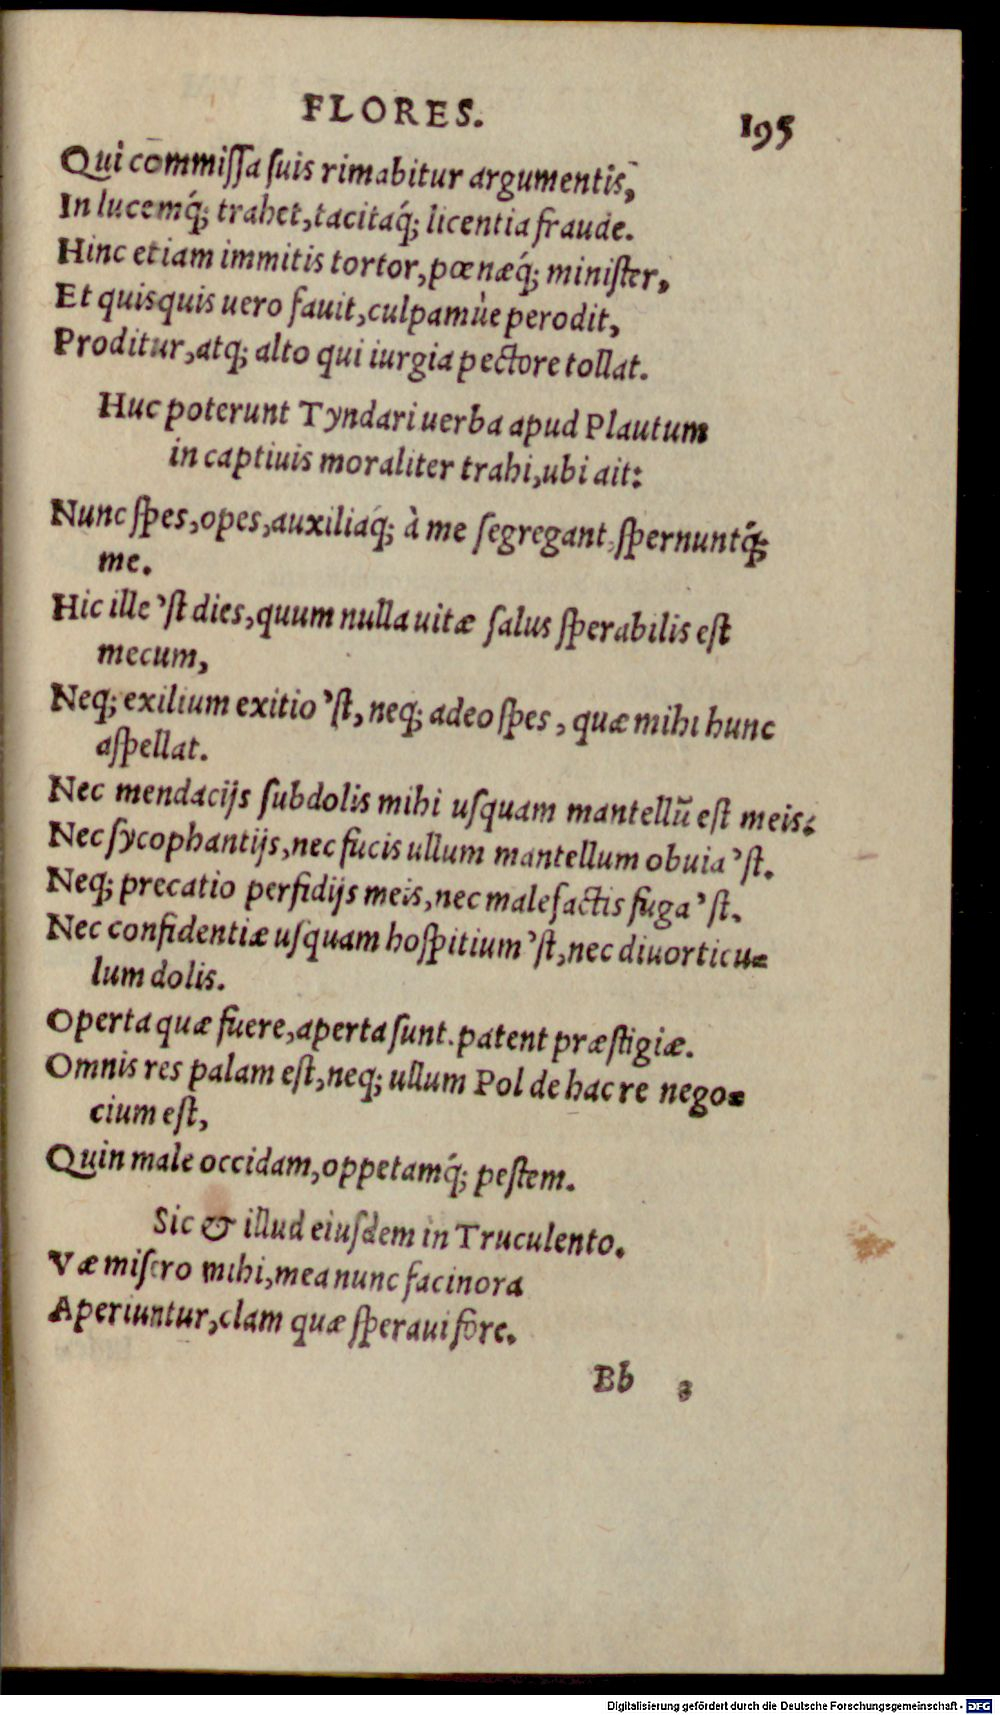 FLORES. 195
Qui cōmmiſſa ſuis rimabitur argumentis,
In lucemq́; trahet, tacitaq́; licentia fraude.
Hinc etiam immitis tortor, pœnæq́; miniſter,
Et quisquis uero fauit, culpamùe perodit,
Proditur, atq; alto qui iurgia pectore tollat.
Huc poterunt Tyndari uerba apud Plautum
in captiuis moraliter trahi, ubi ait:
Nunc ſpes, opes, auxiliaq́; à me ſegregant, ſpernuntq́;
me.
Hic ille ’ſt dies, quum nulla uitæ ſalus ſperabilis eſt
mecum,
Neq; exilium exitio ’ſt, neq; adeo ſpes, quæ mihi hunc
aſpellat.
Nec mendacijs ſubdolis mihi uſquam mantellū eſt meis:
Nec ſycophantijs, nec fucis ullum mantellum obuia ’ſt.
Neq; precatio perfidijs meis, nec malefactis fuga ’ſt.
Nec confidentiæ uſquam hoſpitium ’ſt, nec diuorticu-
lum dolis.
Operta quæ fuere, aperta ſunt. patent præſtigiæ.
Omnis res palam eſt, neq; ullum Pol de hac re nego-
cium eſt,
Quin male occidam, oppetamq́; peſtem.
Sic & illud eiuſdem in Truculento.
Væ miſero mihi, mea nunc facinora
Aperiuntur, clam quæ ſperaui fore.
Bb 3
Digitalisierung gefördert durch die Deutsche Forschungsgemeinschaft - DFG